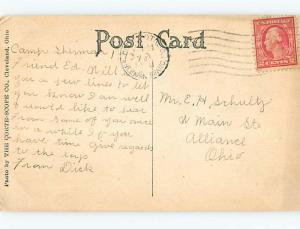 Post Card
Camp Sherman
Friend Ed. Will
you a few lines to let
you know I am well
should like to hear
from some of you once
in a while if you
have time Give regards
to the boys
From Dick
Mr. E. H. Schultz
W Main St
Alliance
Ohio
Photo by THE CORTE-SCOPE CO., Cleveland, Ohio
2 CENTS 2